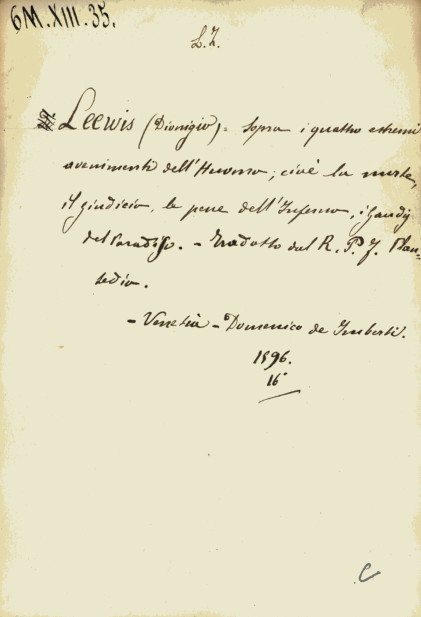 6M.XIII.35.
L. Z.
Leewis (Dionigio) = Sopra i quattro estremi
avenimenti dell'Huomo; cioè la morte,
il giudicio, le pene dell'Inferno, i Gaudij
del Paradiso. - Tradotto dal R. P. J. Plan=
tedio.
- Venetia - Domenico de Imberti.
1596.
16°
C